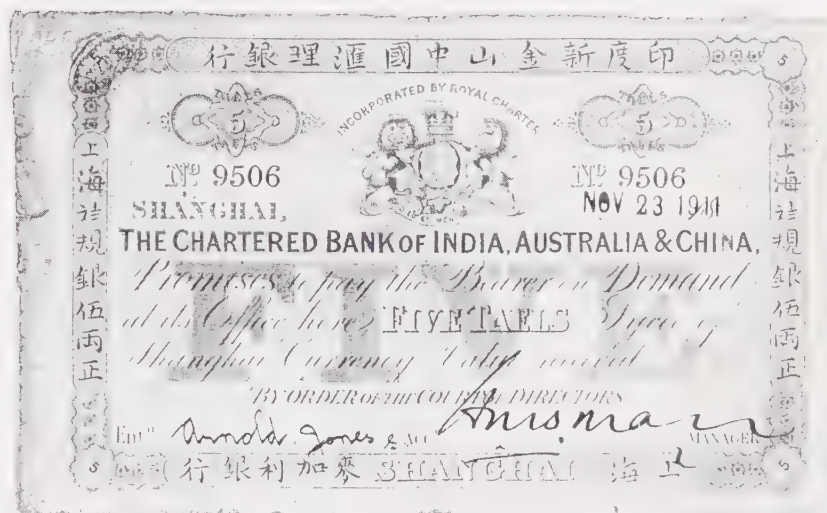 行銀理滙國中山金新度印
5 5
TAELS 5 TAELS
INCORPORATED BY ROYAL CHARTER
TAELS 5 TAELS
Nº 9506 Nº 9506
SHANGHAI, NOV 23 1911
THE CHARTERED BANK OF INDIA, AUSTRALIA & CHINA,
Promises to pay the Bearer on Demand
at its Office here FIVE TAELS Sycee of
Shanghai Currency Value received
BY ORDER OF THE COURT OF DIRECTORS
Entd Arnold Jones Acct MANAGER
行銀利加麥 SHANGHAI 海上
5 5
上海規銀伍両正
上海規銀伍両正
FIVE